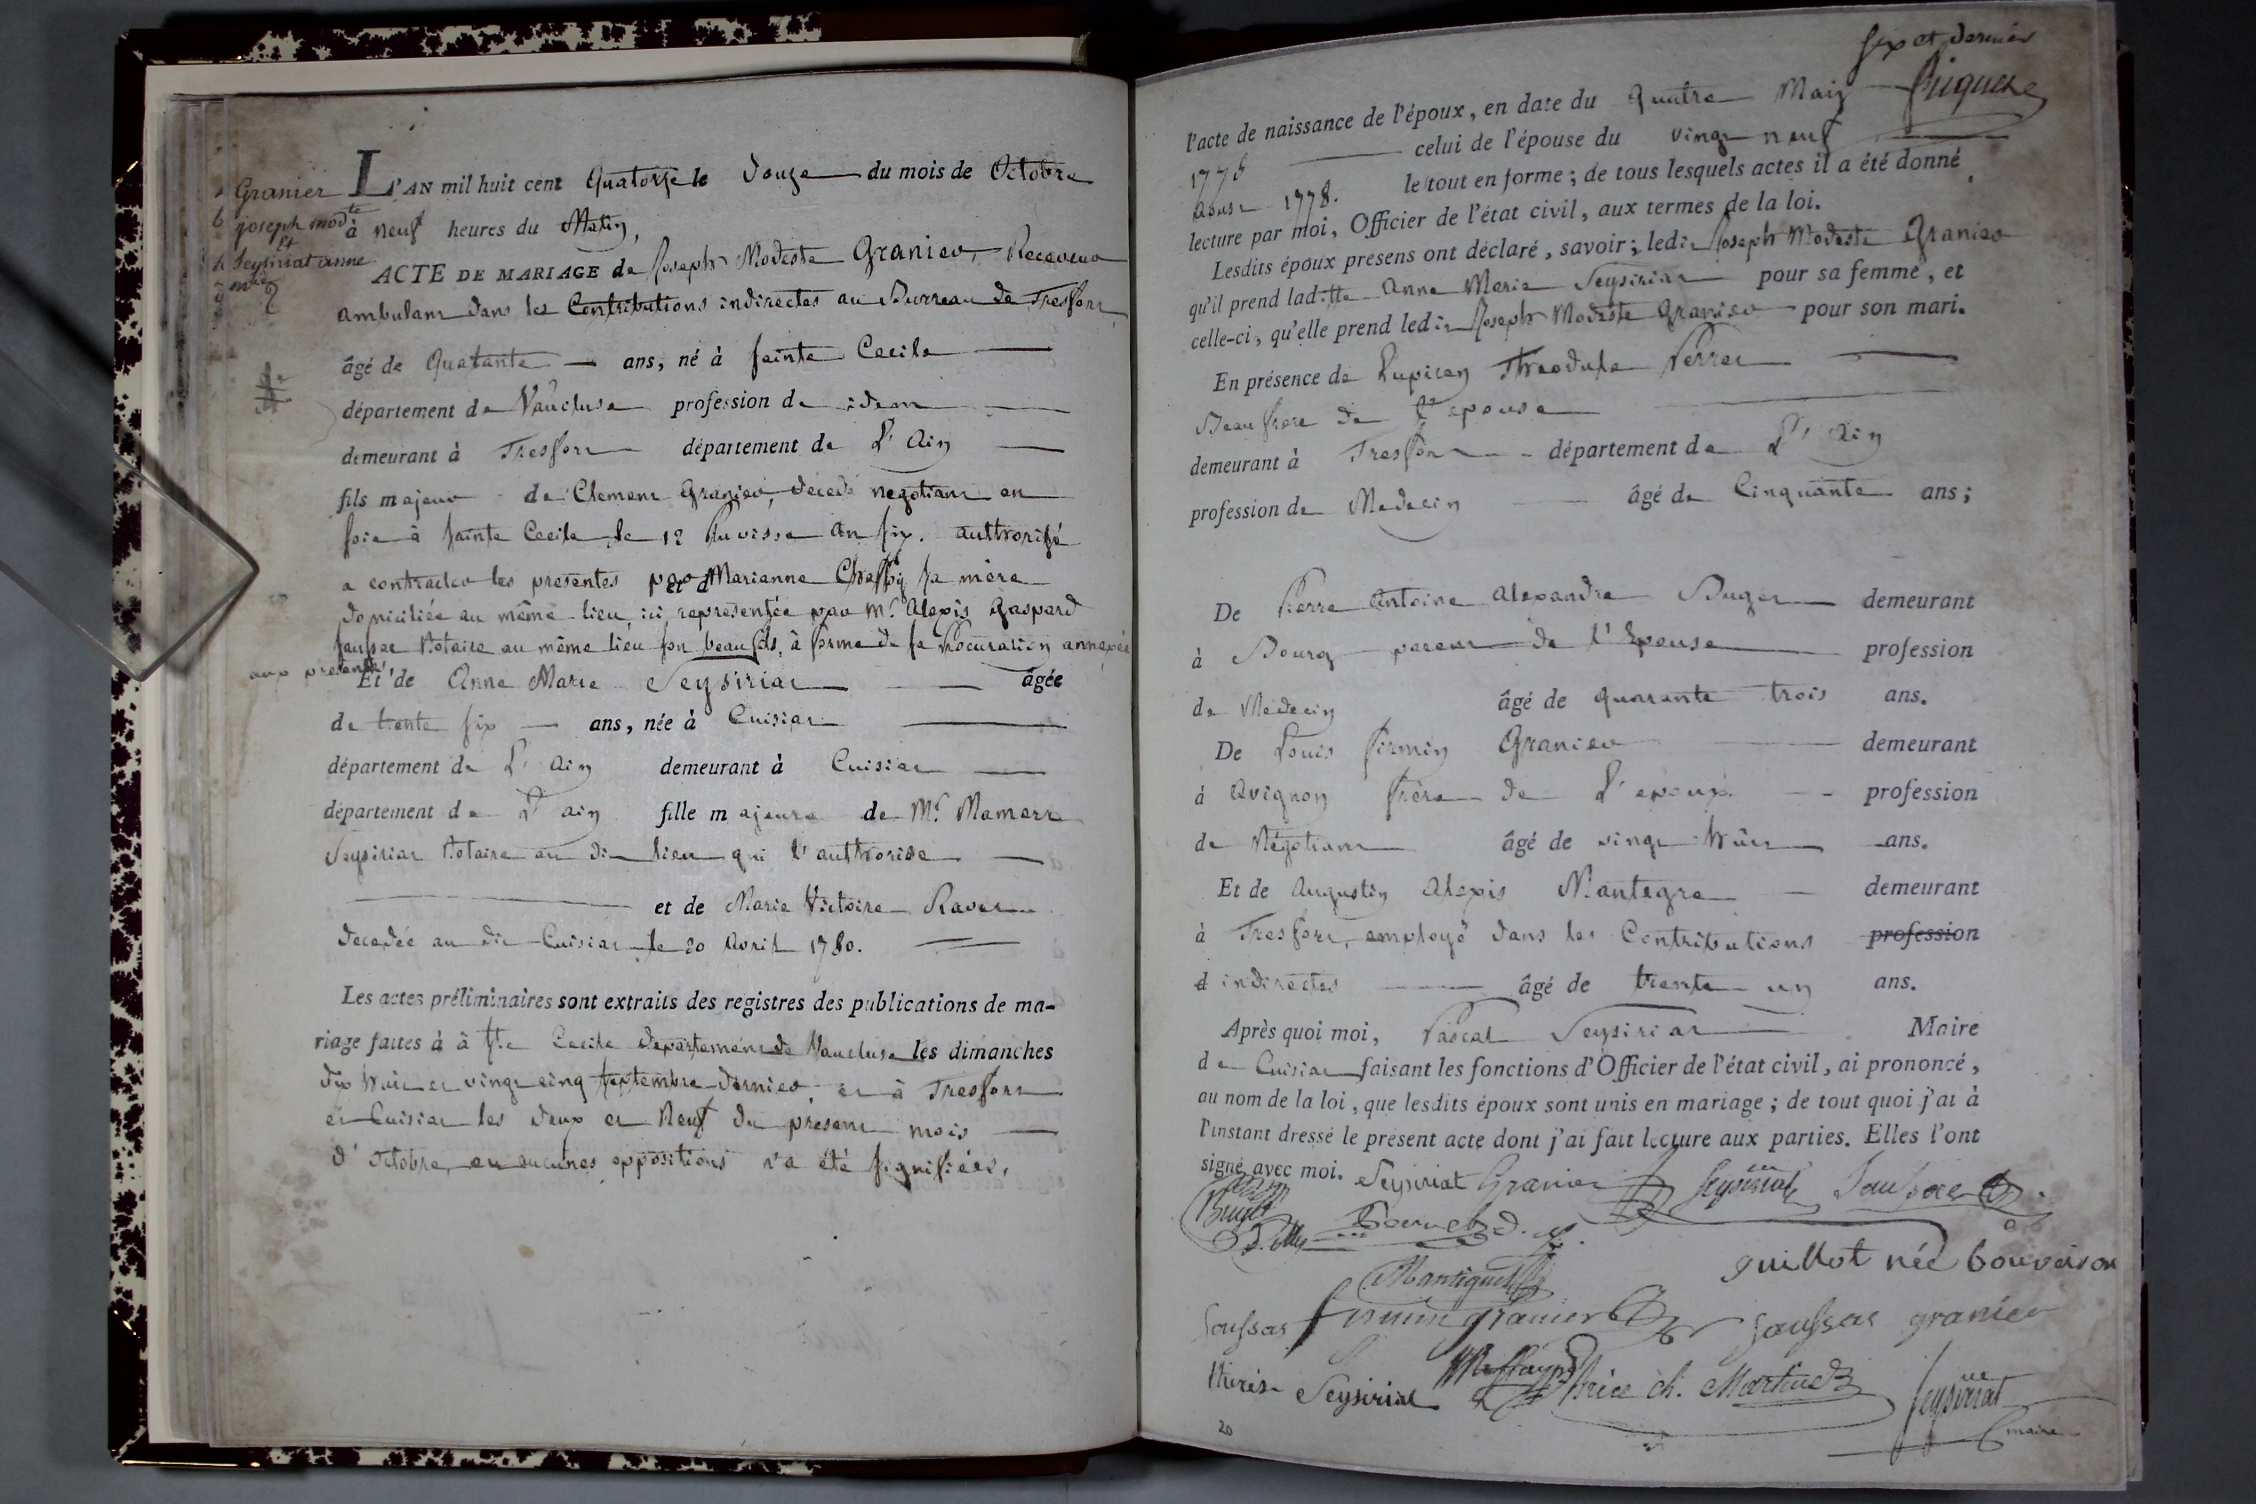 Granier
joseph modte
et
Seysiriat anne
mie
2
L'AN mil huit cent Quatorze le Douze du mois de Octobre
à neuf heures du Matin,
ACTE DE MARIAGE de Joseph Modeste Granier, Receveur
ambulant dans les Contributions indirectes au Burreau de Tresfort
âgé de Quatante ans, né à Sainte Cecile
département de Vaucluse profession de idem
demeurant à Tresfort département de L'Ain
fils majeur de Clement Granier, decedé negotiant en
soie à Sainte Cecile le 12 Pluviose an six. authorisé
a contracter les presentes par Marianne sa mère
domiciliée au même lieu, ici representée par Mr. Alexis Gaspard
Notaire au même lieu son beau fils, à forme de sa Procuration annexée
aux presentes,
Et de Anne Marie Seysiriat âgée
de trente six ans, née à Cuisiat
département de L'Ain demeurant à Cuisiat
département de L'ain fille majeure de Mr. Mamert
Seysiriat Notaire au dit lieu qui l'authorise
et de Marie Victoire Ravet
decedée au dit Cuisiat le 20 Avril 1780.
Les actes préliminaires sont extraits des registres des publications de ma-
riage faites à à Ste Cecile departement de Vaucluse les dimanches
dix huit et vingt cinq Septembre dernier, et à Tresfort
et Cuisiat les deux et Neuf du present mois
d'octobre, et aucunes oppositions n'a été signifiées,
six et dernier
l'acte de naissance de l'époux, en date du Quatre Mars
1775 celui de l'épouse du vingt neuf
Aoust 1778. le tout en forme; de tous lesquels actes il a été donné
lecture par moi, Officier de l'état civil, aux termes de la loi.
Lesdits époux presens ont déclaré, savoir; ledit Joseph Modeste Granier
qu'il prend ladite Anne Marie Seysiriat pour sa femme, et
celle-ci, qu'elle prend ledit Joseph Modeste Granier pour son mari.
En présence de Lupicin Theodule Perret
Beau frere de l'epouse
demeurant à Tresfort département de L'Ain
profession de Medecin âgé de Cinquante ans;
De Pierre Antoine Alexandre Buget demeurant
à Bourg parent de l'Epouse profession
de Medecin âgé de quarante trois ans.
De Louis firmin Granier demeurant
à Avignon frère de L'epoux profession
de Négotiant âgé de vingt huit ans.
Et de Augustin Alexis Mantegre demeurant
à Tresfort, employé dans les Contributions profession
d indirectes âgé de trente un ans.
Après quoi moi, Pascal Seysiriat Maire
de Cuisiat faisant les fonctions d'Officier de l'état civil, ai prononcé,
au nom de la loi, que lesdits époux sont unis en mariage; de tout quoi j'ai à
l'instant dressé le présent acte dont j'ai fait lecture aux parties. Elles l'ont
signé avec moi. Seysiriat Granier Seysiriat
Buget
guillot née bouveison
firmin granier granier
Seysiriat ch. Martinet Seysiriat
maire
20